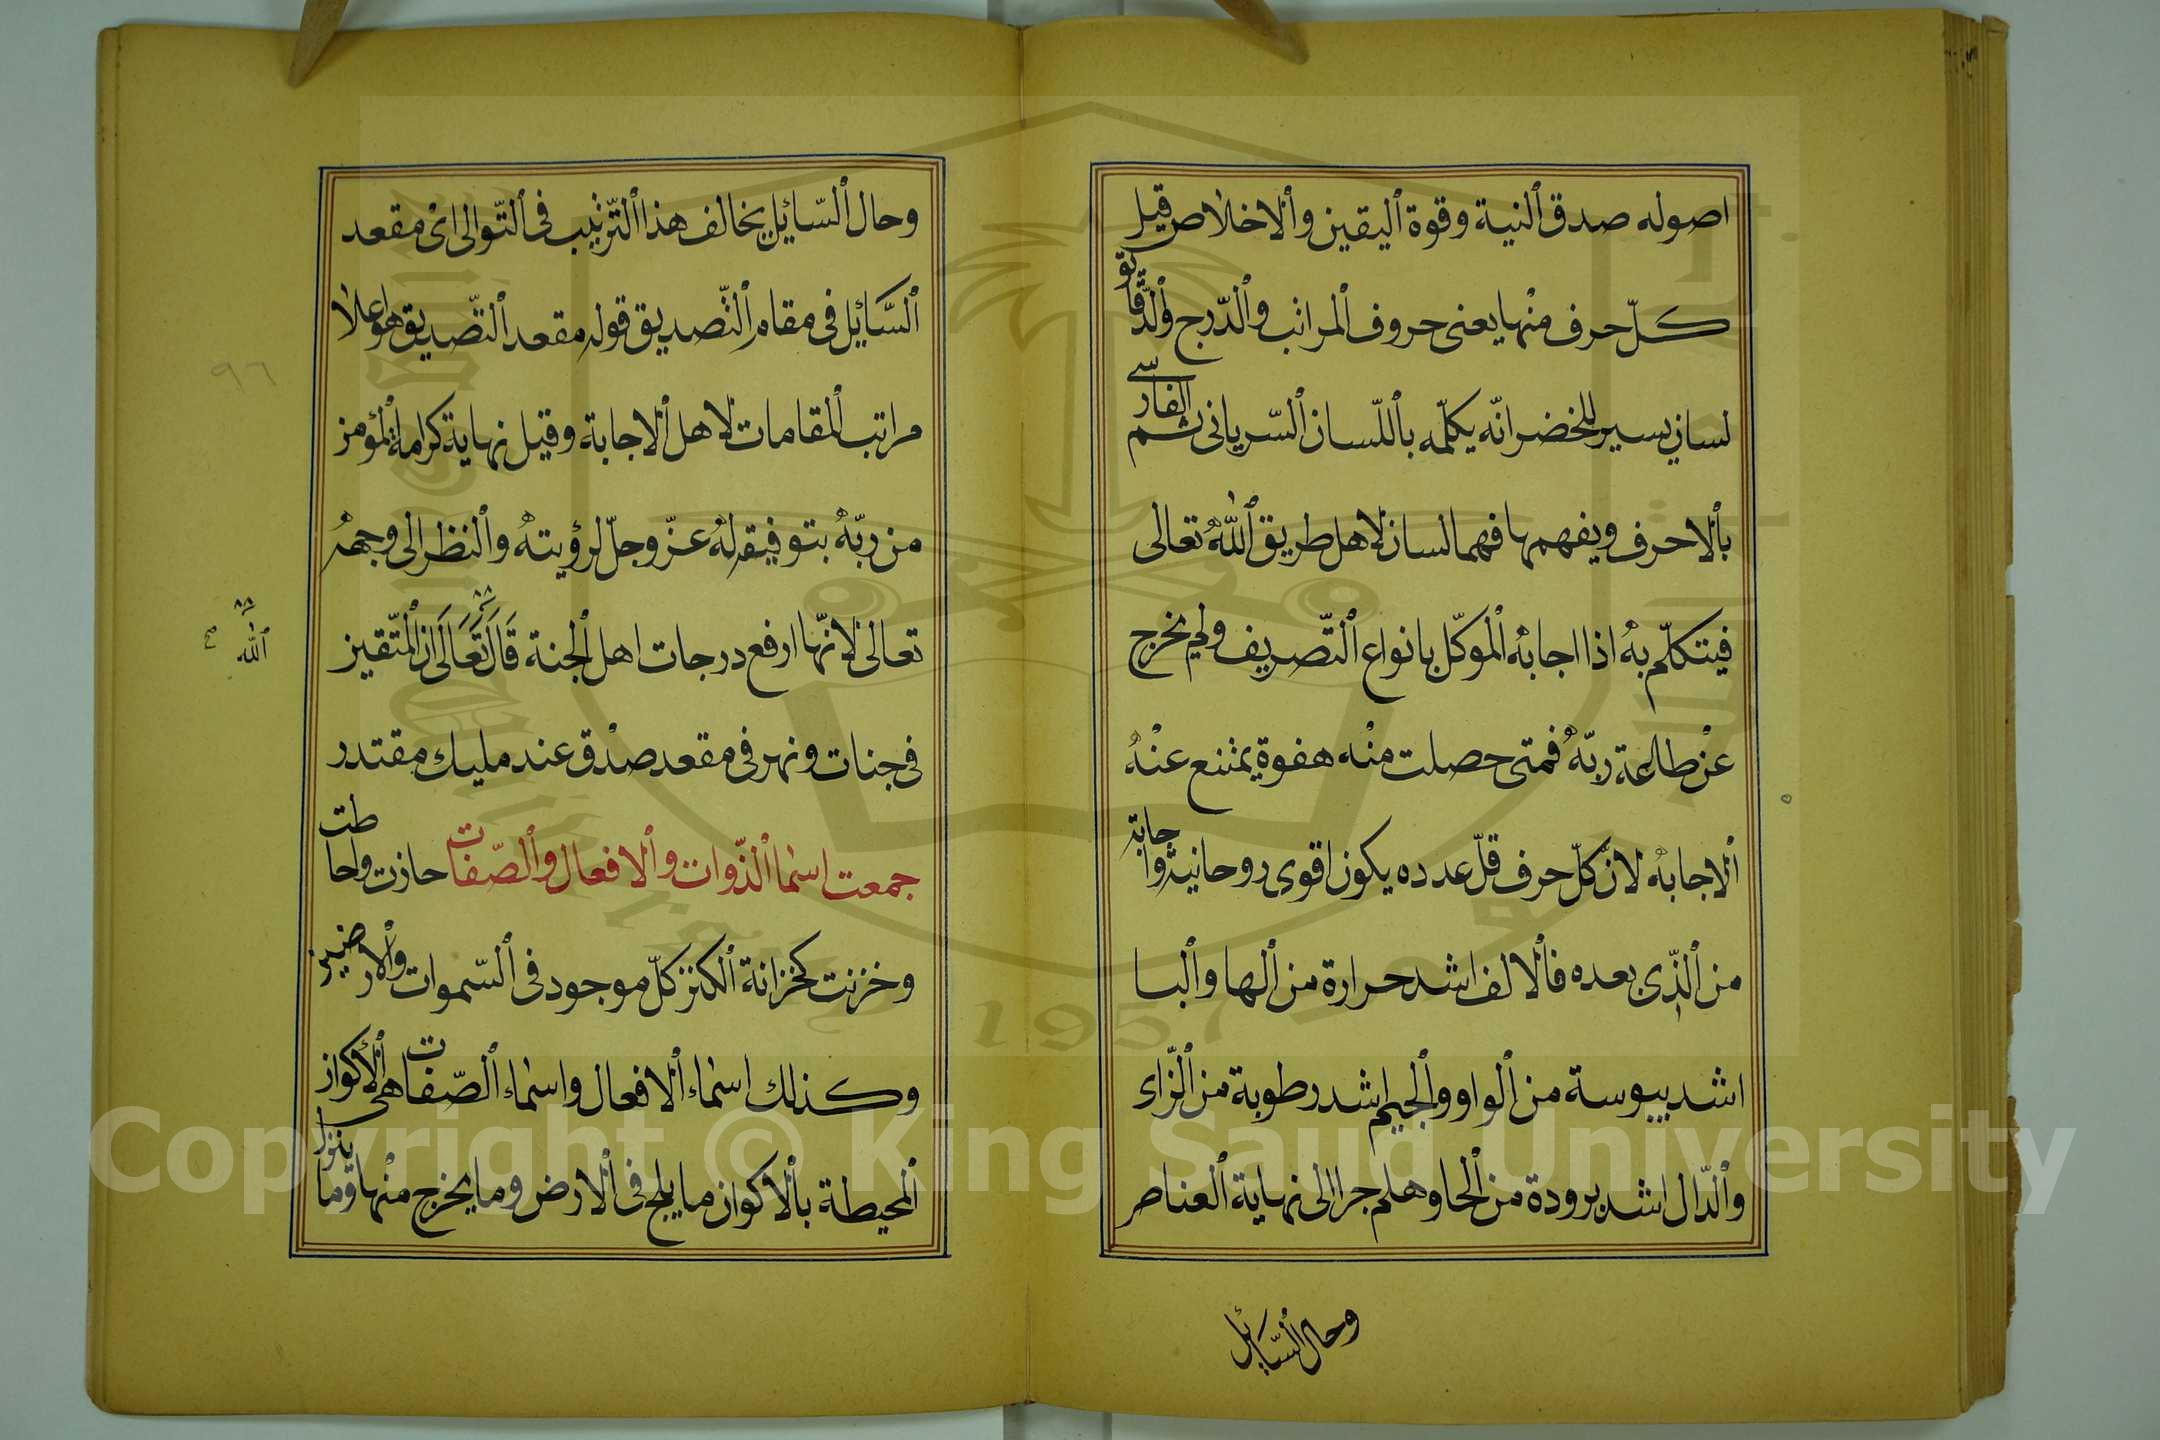 اصوله صدق ٱلنية وقوة ٱليقين وٱلاخلاص قيل
كلّ حرف منْها يعنى حروف ٱلمراتب وٱلدّرج وٱلدّقايق
لسان يسير للخضر انّه يكلّمه بٱللّسان ٱلسّريانى ثم الفارسى
بٱلاحرف ويفهمها فهما لسان لاهل طريق ٱللّٰه تعالى
فيتكلّم به اذا اجابه ٱلموكّل بانواع ٱلتّصريف ولم يخرج
عنْ طاعة ربّه فمتى حصلت منْه هفوة يمتنع عنْهُ
ٱلاجابه لانّ كلّ حرف قلّ عدده يكون اقوى روحانية واجابة
من ٱلّذى بعده فٱلالف اشد حرارة من ٱلها وٱلبا
اشد يبوسة من ٱلواو وٱلجيم اشد رطوبة من ٱلزّاء
وٱلدّال اشد برودة من ٱلحا وهلم جرا الى نهاية ٱلعناصر
وحال ٱلسّايل
وحال ٱلسّايل يخالف هذا ٱلتّرتيب فى ٱلتّوالى اىْ مقعد
ٱلسَّائِل فى مقام ٱلتّصديق قوله مقعد ٱلتّصديق هو اعلا
مراتب ٱلمقامات لاهل ٱلاجابة وقيل نهاية كرامة ٱلمؤمن
من ربّهُ بتوفيقه لهُ عزّ وجلّ لرؤيتهُ وٱلنظر الى وجههُ
تعالى لانّها ارفع درجات اهل ٱلجنة قَالَ تَعَالَى ان ٱلمتّقين
ٱللّٰه صح
فى جنات ونهر فى مقعد صدْق عند مليك مقتدر
جمعت اسما ٱلذّوات وٱلافعال وٱلصّفات حاذت واحاطت
وخزنت كخزانة ٱلكنز كلّ موجود فى ٱلسّموات وٱلارضين
وكذلك اسماء ٱلافعال واسماء ٱلصّفات هى ٱلأكوان
ٱلمحيطة بٱلاكوان ما يلج فى ٱلارض وما يخرج منْها وما ينزل
٩٦
1957
Copyright © King Saud University